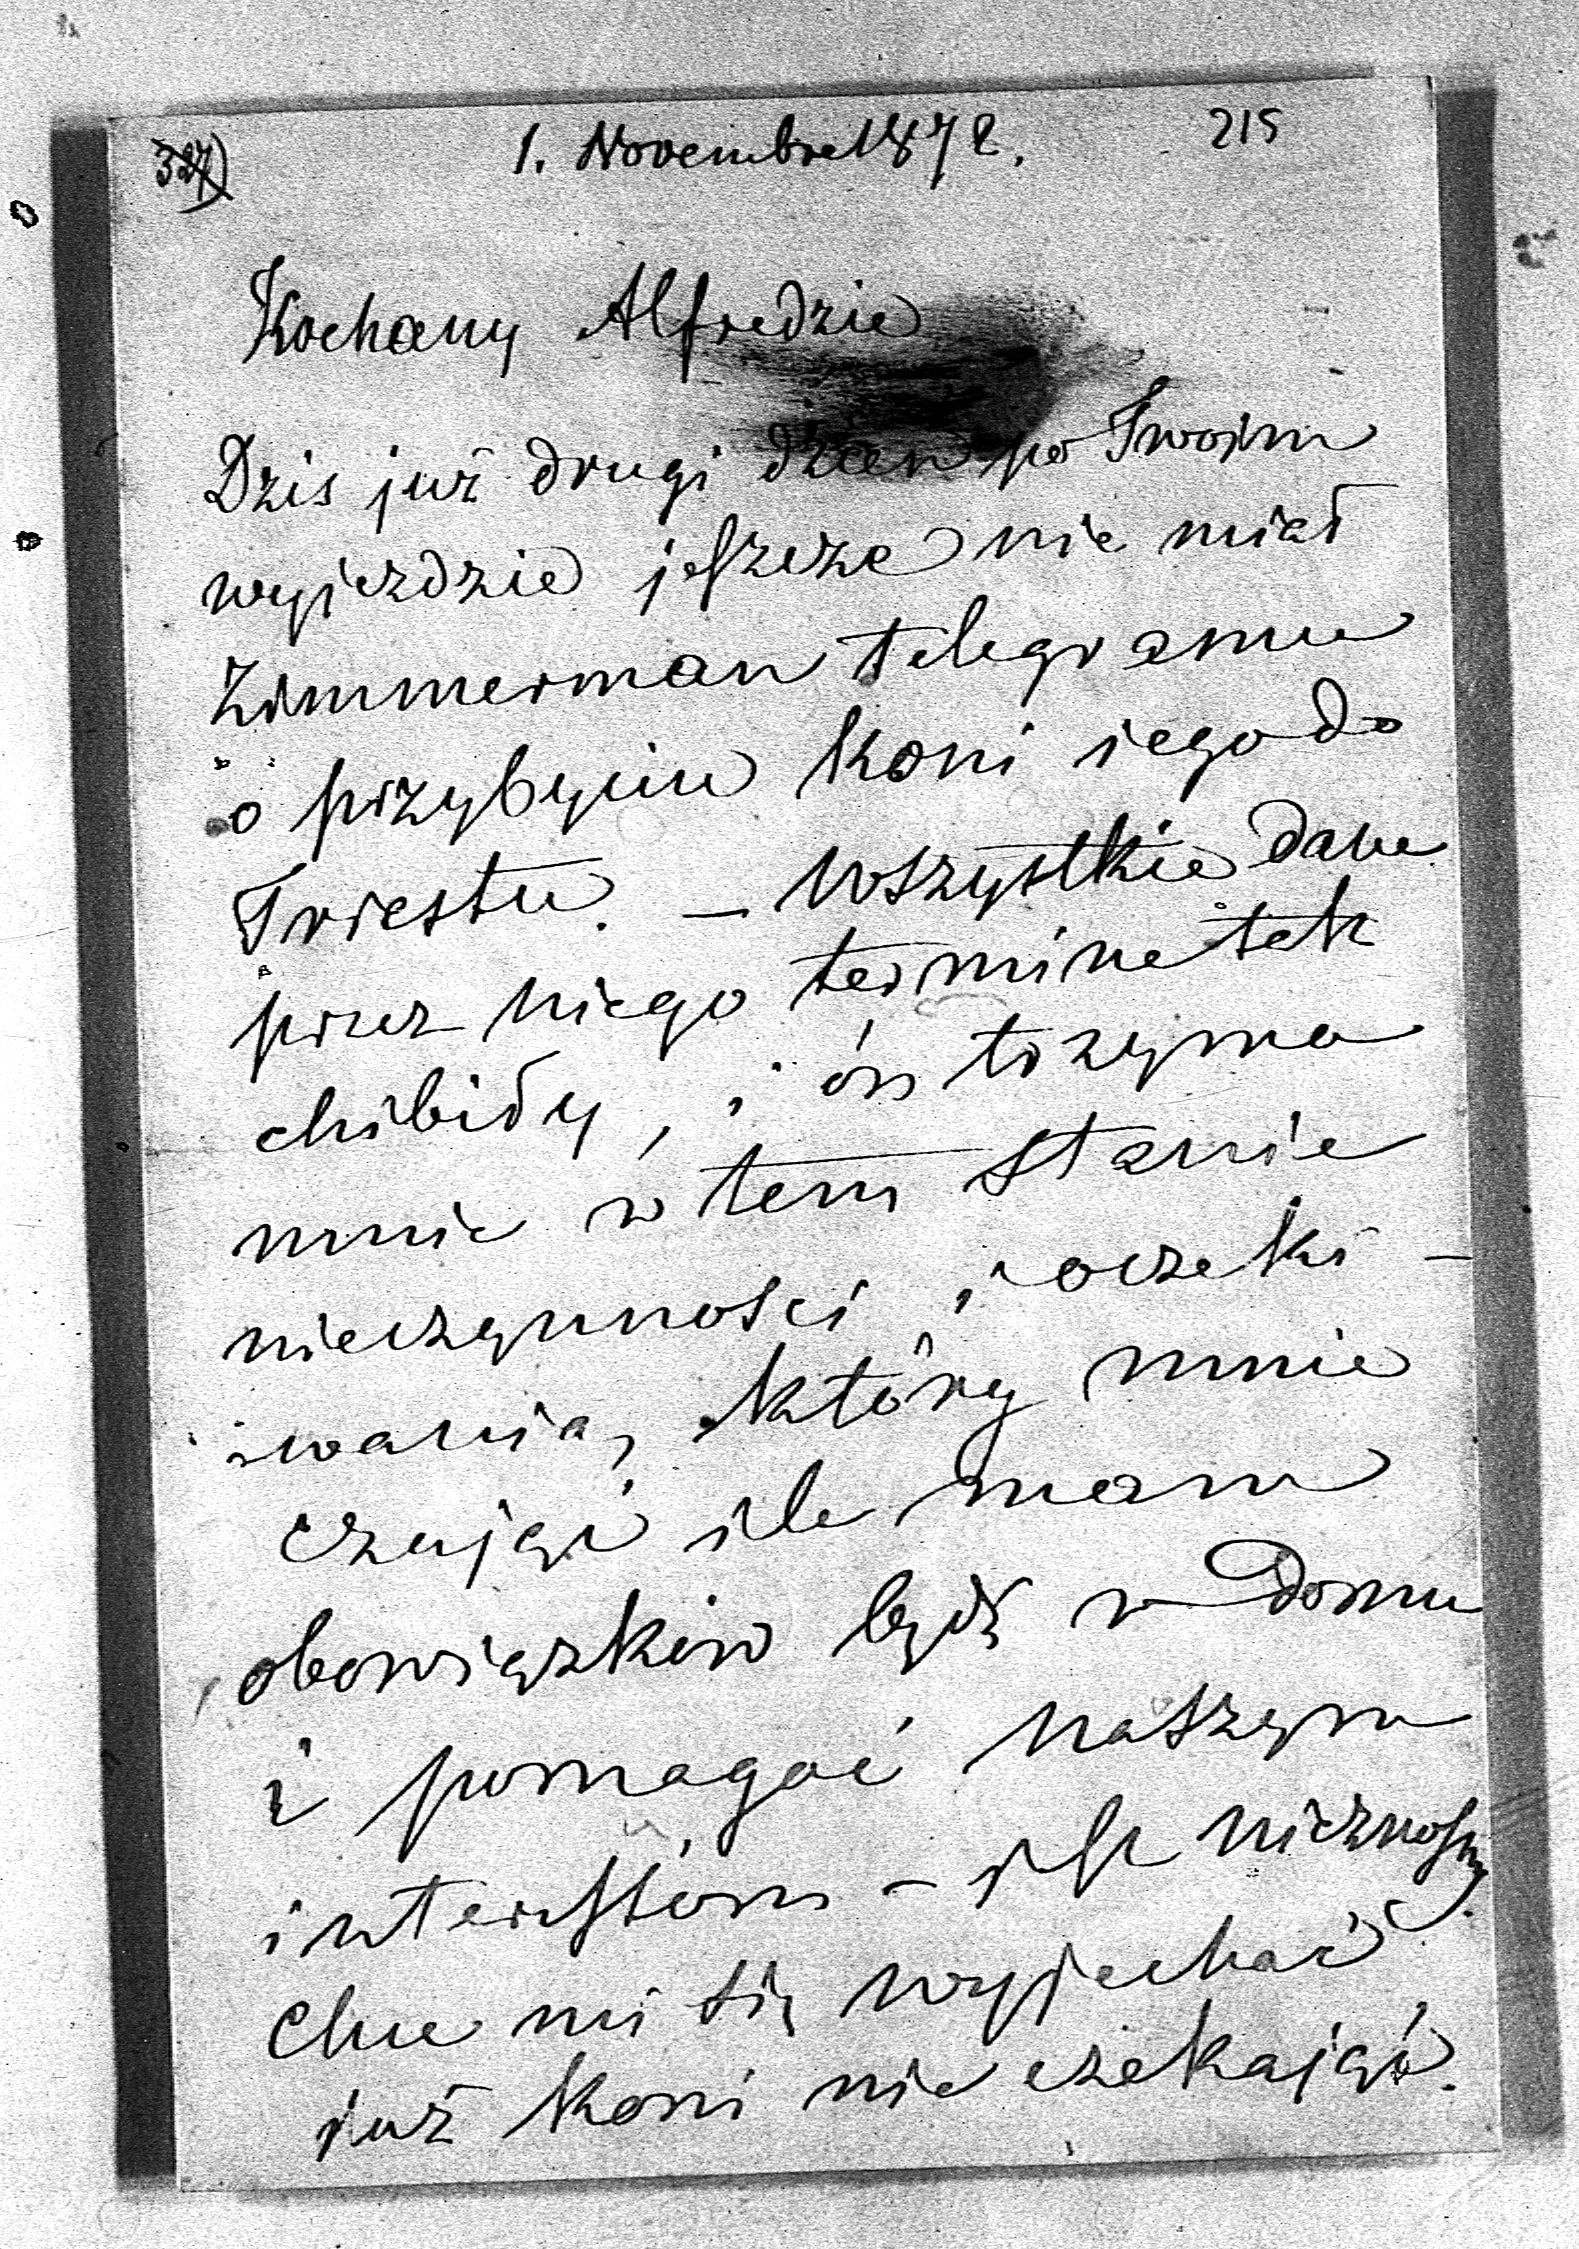 327) 1. Novembre 1872. 215
Kochany Alfredzie
Dzis już drugi dzien po Twojem
wyjezdzie jeszcze nie miał
Zimmerman telegramu
o przybyciu koni iego do
Triestu. – Wszystkie dane
przez niego termina tak
chibiły, i ón trzyma
mnie w tem stanie
nieczynności i oczeki-
iwania, który mnie
czując ile mam
obowiązków bydź w Domu
i pomagać naszym
interessom – jest nieznośny.
Chce mi się wyjechać
już koni nie czekając.